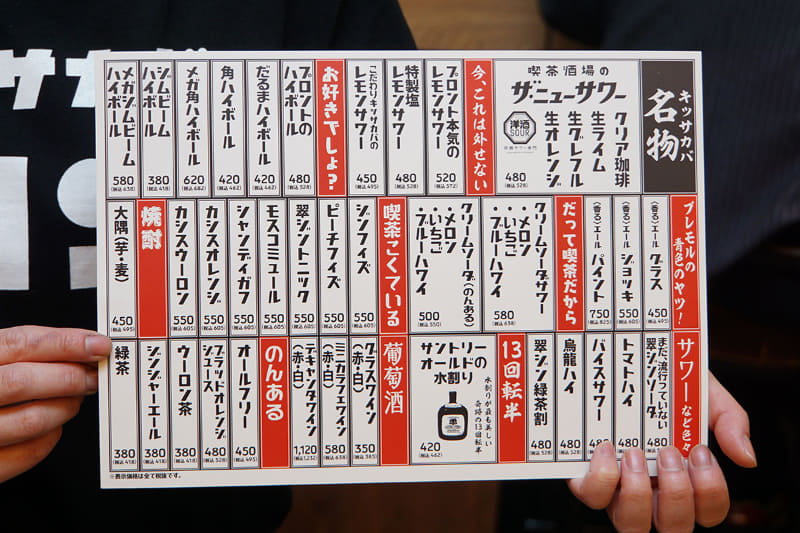 キッサカバ
名物
喫茶酒場の
ザ・ニューサワー
クリア珈琲
生ライム
生グレフル
生オレンジ
洋酒
SOUR
480
(税込 528)
今、これは外せない
プロント本気の
レモンサワー
520
(税込 572)
特製塩
レモンサワー
480
(税込 528)
こだわりキッサカバの
レモンサワー
450
(税込 495)
お好きでしょ?
プロントの
ハイボール
480
(税込 528)
だるまハイボール
420
(税込 462)
角ハイボール
420
(税込 462)
メガ角ハイボール
620
(税込 682)
ジムビーム
ハイボール
380
(税込 418)
メガジムビーム
ハイボール
580
(税込 638)
プレモルの
青色のヤツ!
〈香る〉エール グラス
450
(税込 495)
〈香る〉エール ジョッキ
550
(税込 605)
〈香る〉エール パイント
750
(税込 825)
だって喫茶だから
クリームソーダサワー
・メロン
・いちご
・ブルーハワイ
580
(税込 638)
クリームソーダ(のんある)
・メロン
・いちご
・ブルーハワイ
500
(税込 550)
喫茶こくている
ジンフィズ
550
(税込 605)
ピーチフィズ
550
(税込 605)
翠ジントニック
550
(税込 605)
モスコミュール
550
(税込 605)
シャンディガフ
550
(税込 605)
カシスオレンジ
550
(税込 605)
カシスウーロン
550
(税込 605)
焼酎
大隅(芋・麦)
450
(税込 495)
サワーなど色々
まだ、流行っていない
翠ジンソーダ。
480
トマトハイ
480
バイスサワー
480
烏龍ハイ
480
(税込 528)
翠ジン緑茶割
480
(税込 528)
13回転半
サントリーの
オールド
水割り
水割りが最も美しい
奇跡の13回転半
420
(税込 462)
葡萄酒
グラスワイン
(赤・白)
350
(税込 385)
ミニカラフェワイン
(赤・白)
580
(税込 638)
デキャンタワイン
(赤・白)
1,120
(税込 1,232)
のんある
オールフリー
450
(税込 495)
ブラッドオレンジ
ジュース
480
(税込 528)
ウーロン茶
380
(税込 418)
ジンジャーエール
380
(税込 418)
緑茶
380
(税込 418)
※表示価格は全て税抜です。